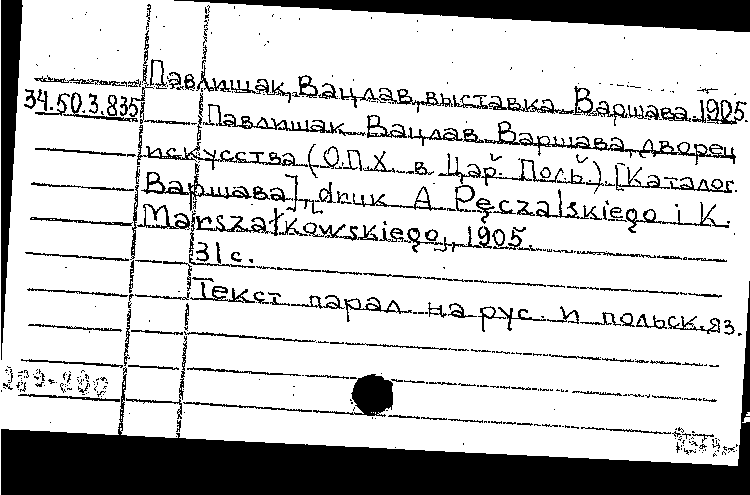 Павлишак, Вацлав, выставка. Варшава. 1905.
34.50.3.835
Павлишак Вацлав. Варшава, дворец
искусства (О.П.Х. в Цар. Поль.). [Каталог.
Варшава], druk A Pęczalskiego i K.
Marszałkowskiego, 1905.
31с.
Текст парал. на рус. и польск. яз.
289-800